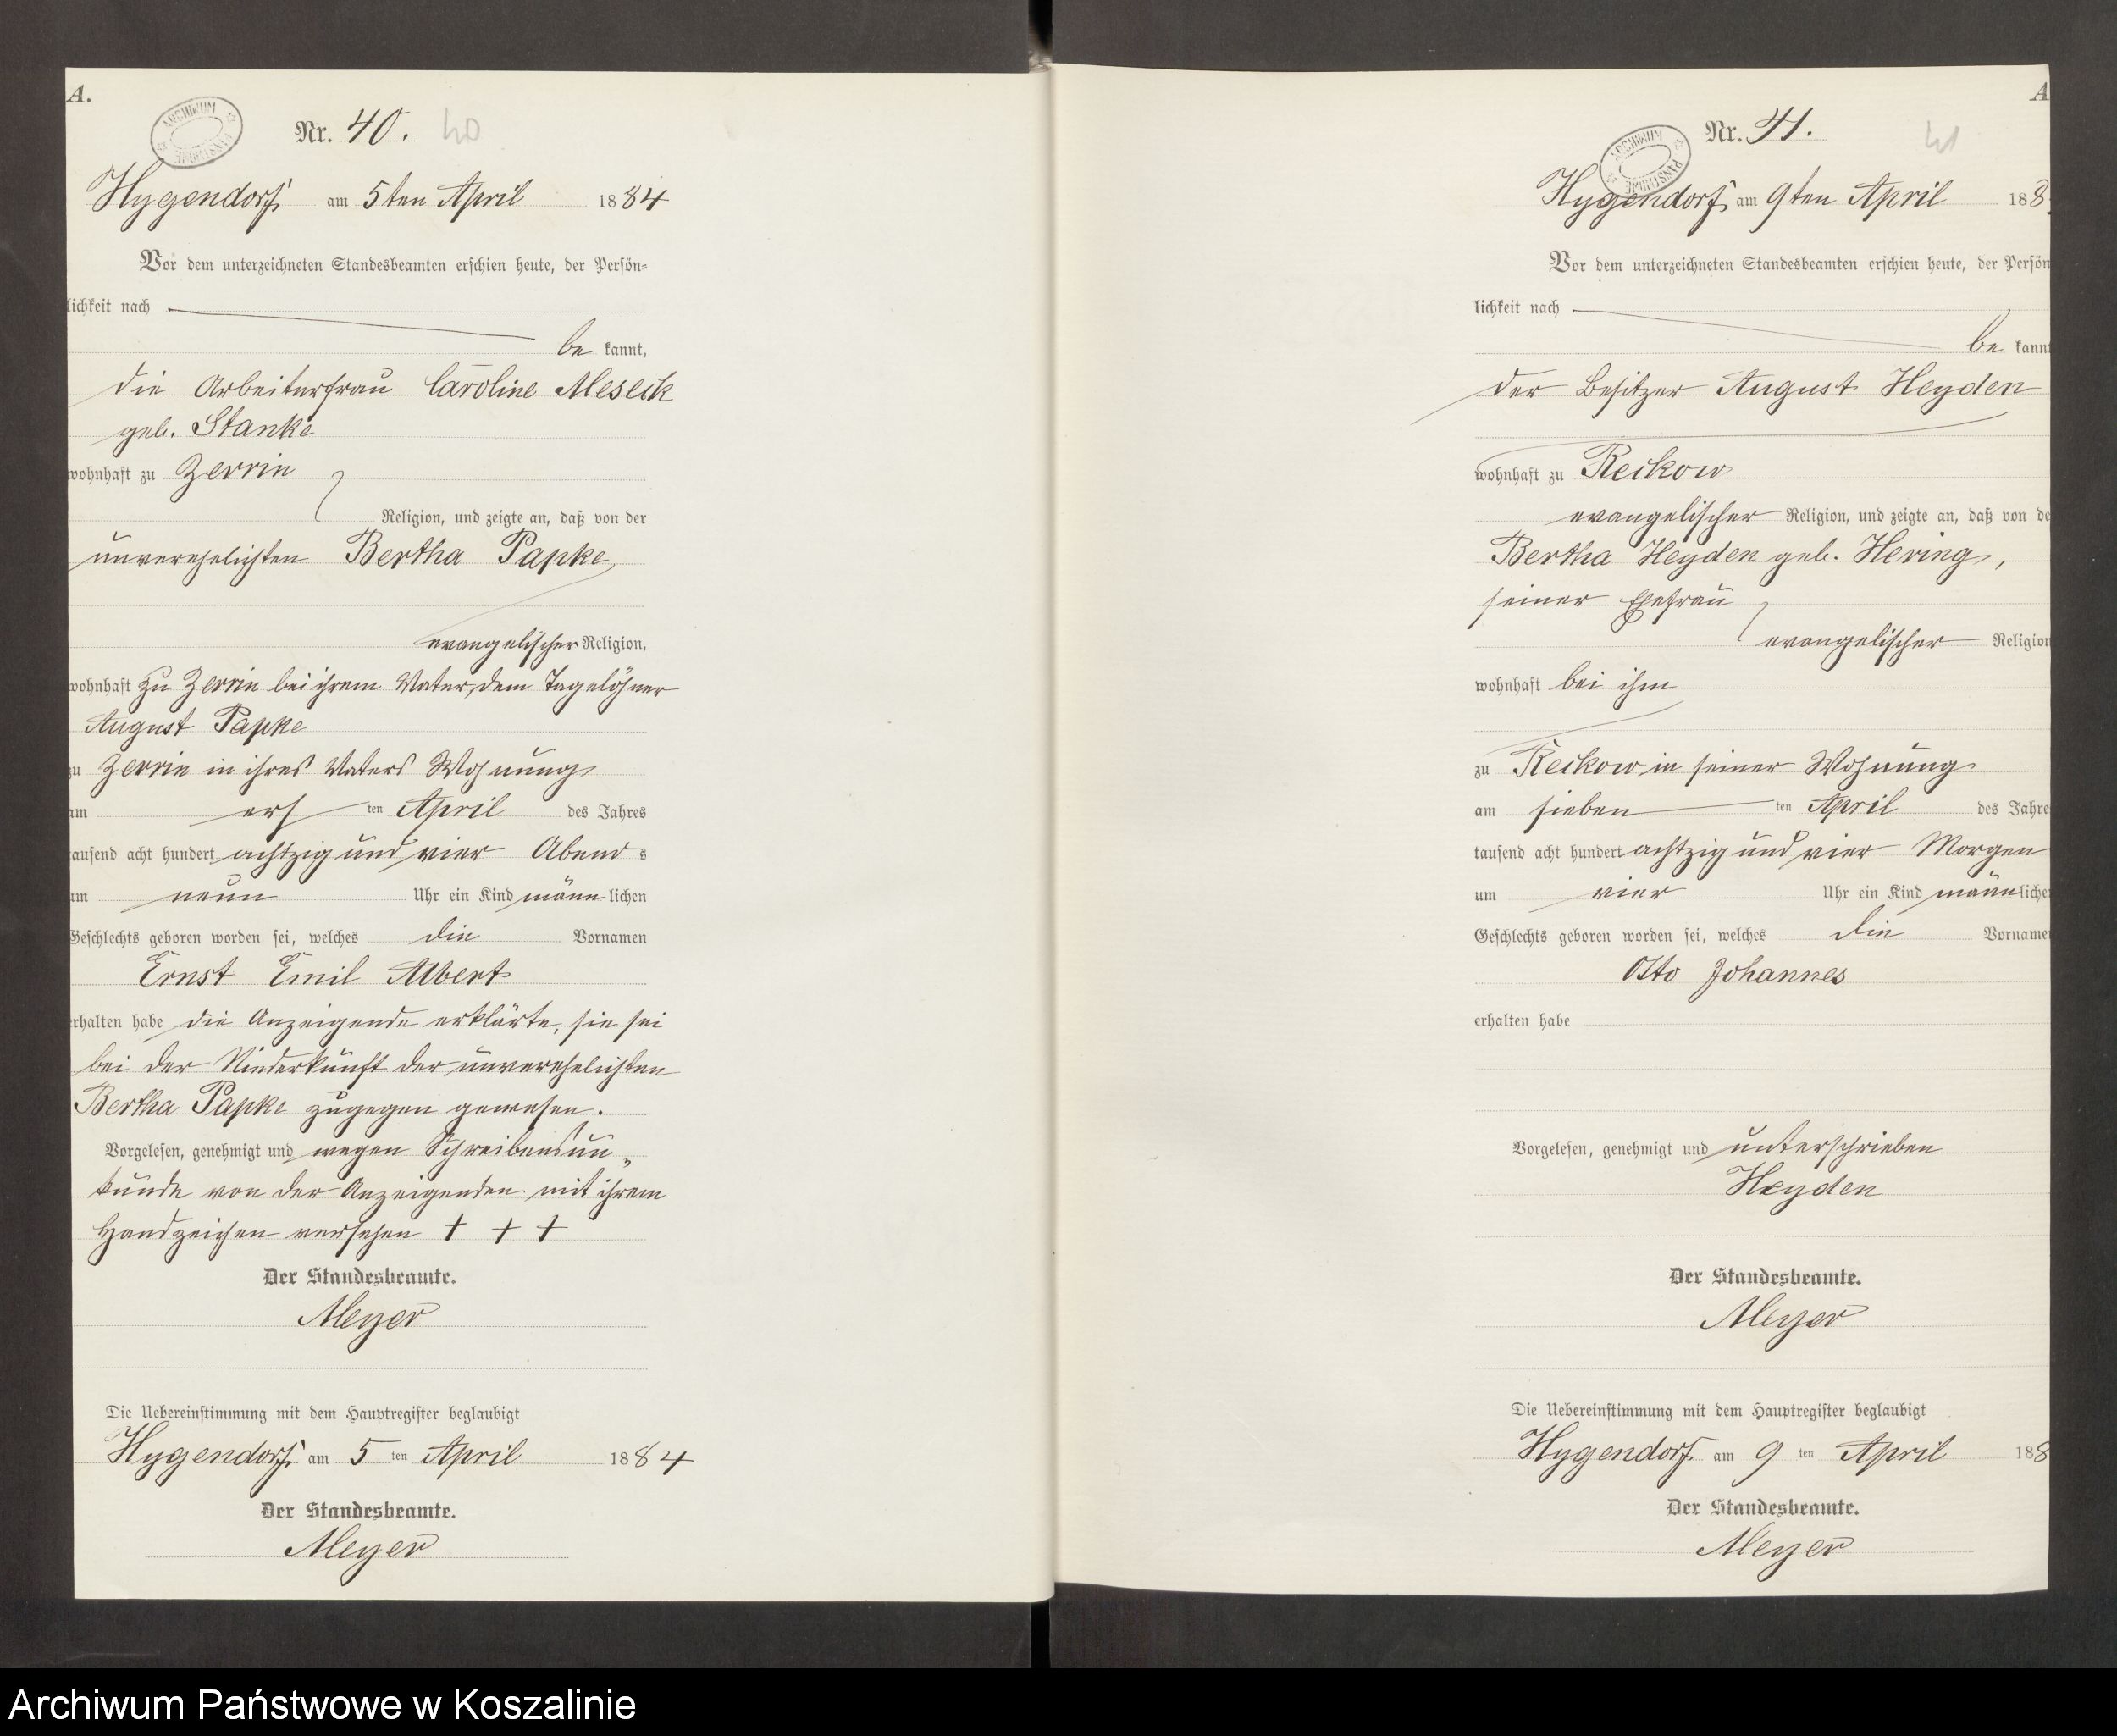 A.
ARCHIWUM PAŃSTWOWE
Nr. 40. 40
Hygendorf am 5ten April 1884
Vor dem unterzeichneten Standesbeamten erschien heute, der Persön-
lichkeit nach
be kannt,
die Arbeiterfrau Caroline Meseck
geb. Stanke
wohnhaft zu Zerrin
Religion, und zeigte an, daß von der
unverehelichten Bertha Papke
evangelischer Religion,
wohnhaft zu Zerrin bei ihrem Vater, dem Tagelöhner
August Papke
zu Zerrin in ihres Vaters Wohnung
am ersten April des Jahres
tausend acht hundert achtzig und vier Abends
um neun Uhr ein Kind männlichen
Geschlechts geboren worden sei, welches die Vornamen
Ernst Emil Albert
erhalten habe die Anzeigende erklärte, sie sei
bei der Niederkunft der unverehelichten
Bertha Papke zugegen gewesen.
Vorgelesen, genehmigt und wegen Schreibensun„
kunde von der Anzeigenden mit ihrem
Handzeichen versehen + + +
Der Standesbeamte.
Meyer
Die Uebereinstimmung mit dem Hauptregister beglaubigt
Hygendorf am 5ten April 1884
Der Standesbeamte.
Meyer
A
ARCHIWUM PAŃSTWOWE
Nr. 41. 41
Hygendorf, am 9ten April 188
Vor dem unterzeichneten Standesbeamten erschien heute, der Persön
lichkeit nach
be kannt
der Besitzer August Heyden
wohnhaft zu Reckow
evangelischer Religion, und zeigte an, daß von de
Bertha Heyden geb. Hering,
seiner Ehefrau
evangelischer Religion
wohnhaft bei ihm
zu Reckow in seiner Wohnung
am siebenten April des Jahre
tausend acht hundert achtzig und vier Morgen
um vier Uhr ein Kind männliche
Geschlechts geboren worden sei, welches die Vorname
Otto Johannes
erhalten habe
Vorgelesen, genehmigt und unterschrieben
Heyden
Der Standesbeamte.
Meyer
Die Uebereinstimmung mit dem Hauptregister beglaubigt
Hygendorf am 9ten April 188
Der Standesbeamte.
Meyer
Archiwum Państwowe w Koszalinie